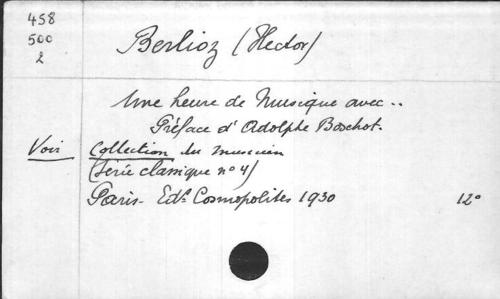 458
500
2
Berlioz (Hector)
Une heure de Musique avec..
Préface d'Adolphe Boschot.
Voir Collection du musicien
(Série classique nº 4)
Paris - Edns Cosmopolites 1930 12º